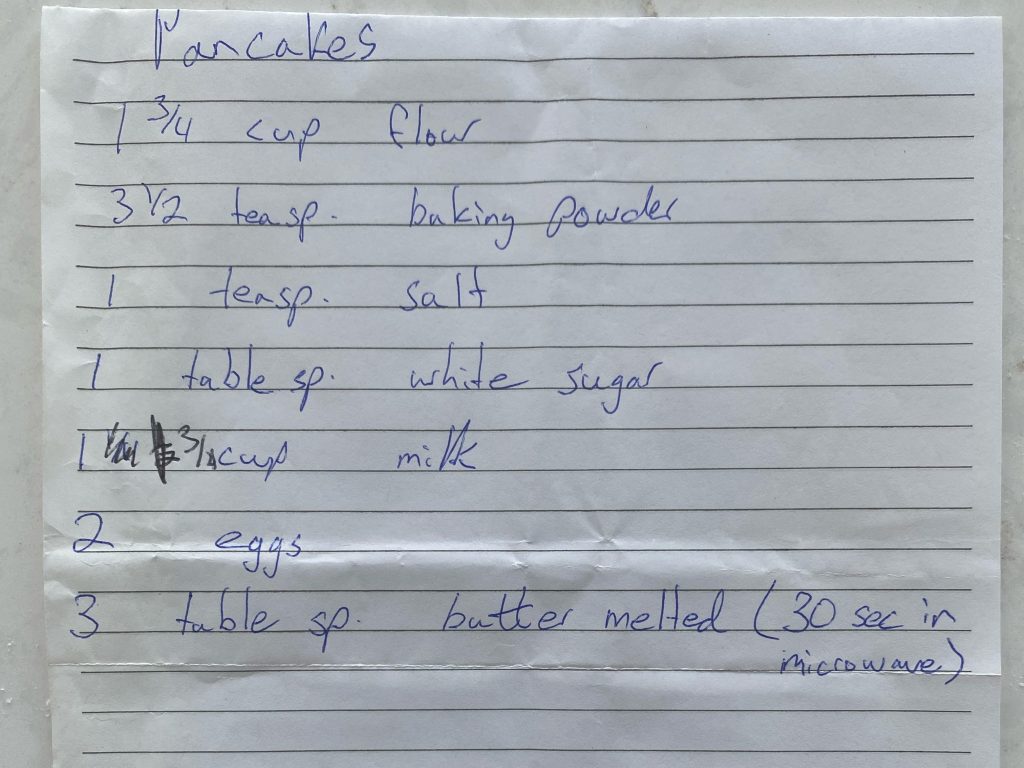 Pancakes
1 3/4 cup flour
3 1/2 teasp. baking powder
1 teasp. salt
1 table sp. white sugar
1 3/4 cup milk
2 eggs
3 table sp. butter melted (30 sec in
microwave)